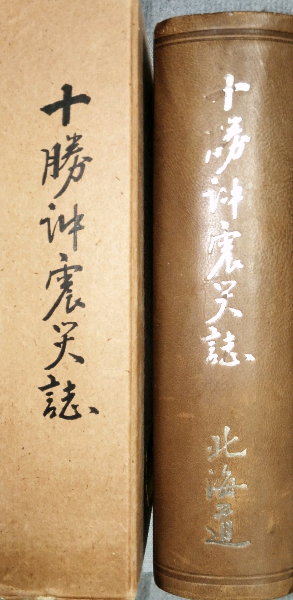 十勝沖震災誌
十勝沖震災誌
北海道